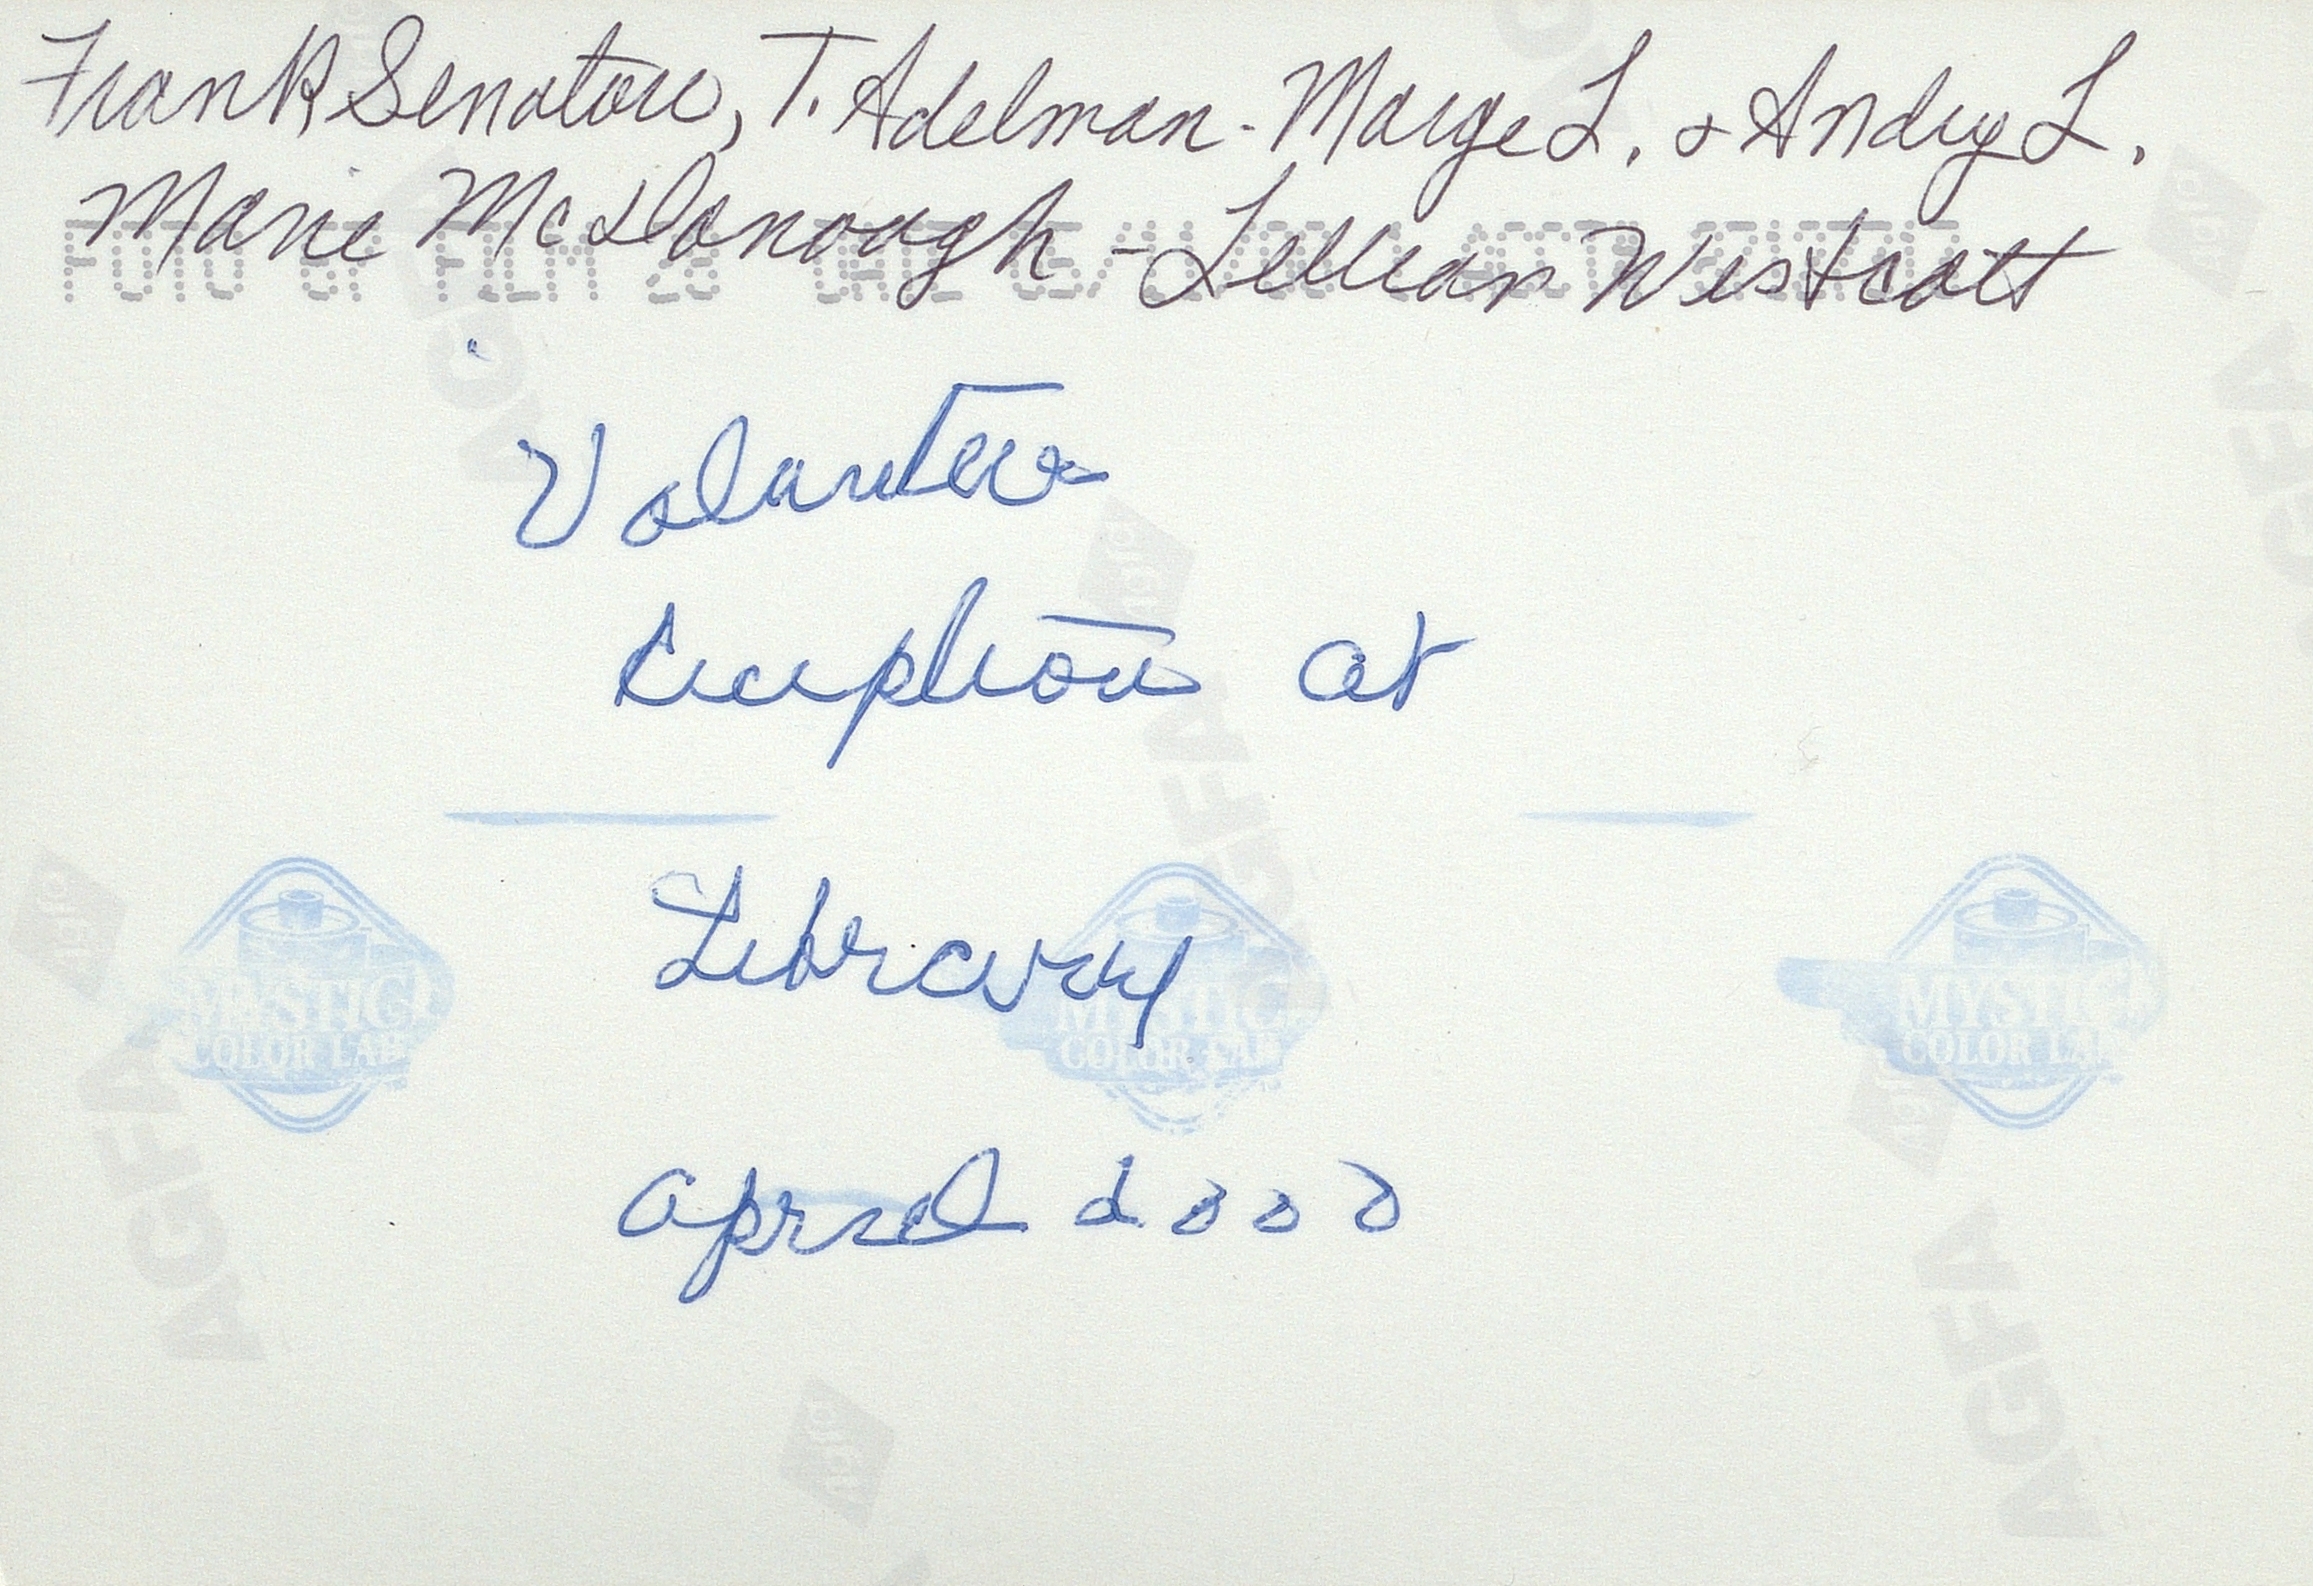 Frank Senatore, T. Adelman - Marge L. & Andy L.
Marie McDonough - Lillian Westcott
FOTO OF FILM 28
Volunteer
reception at
Library
April 2000
MYSTIC COLOR LAB
MYSTIC COLOR LAB
MYSTIC COLOR LAB
AGFA
AGFA
AGFA
AGFA
AGFA